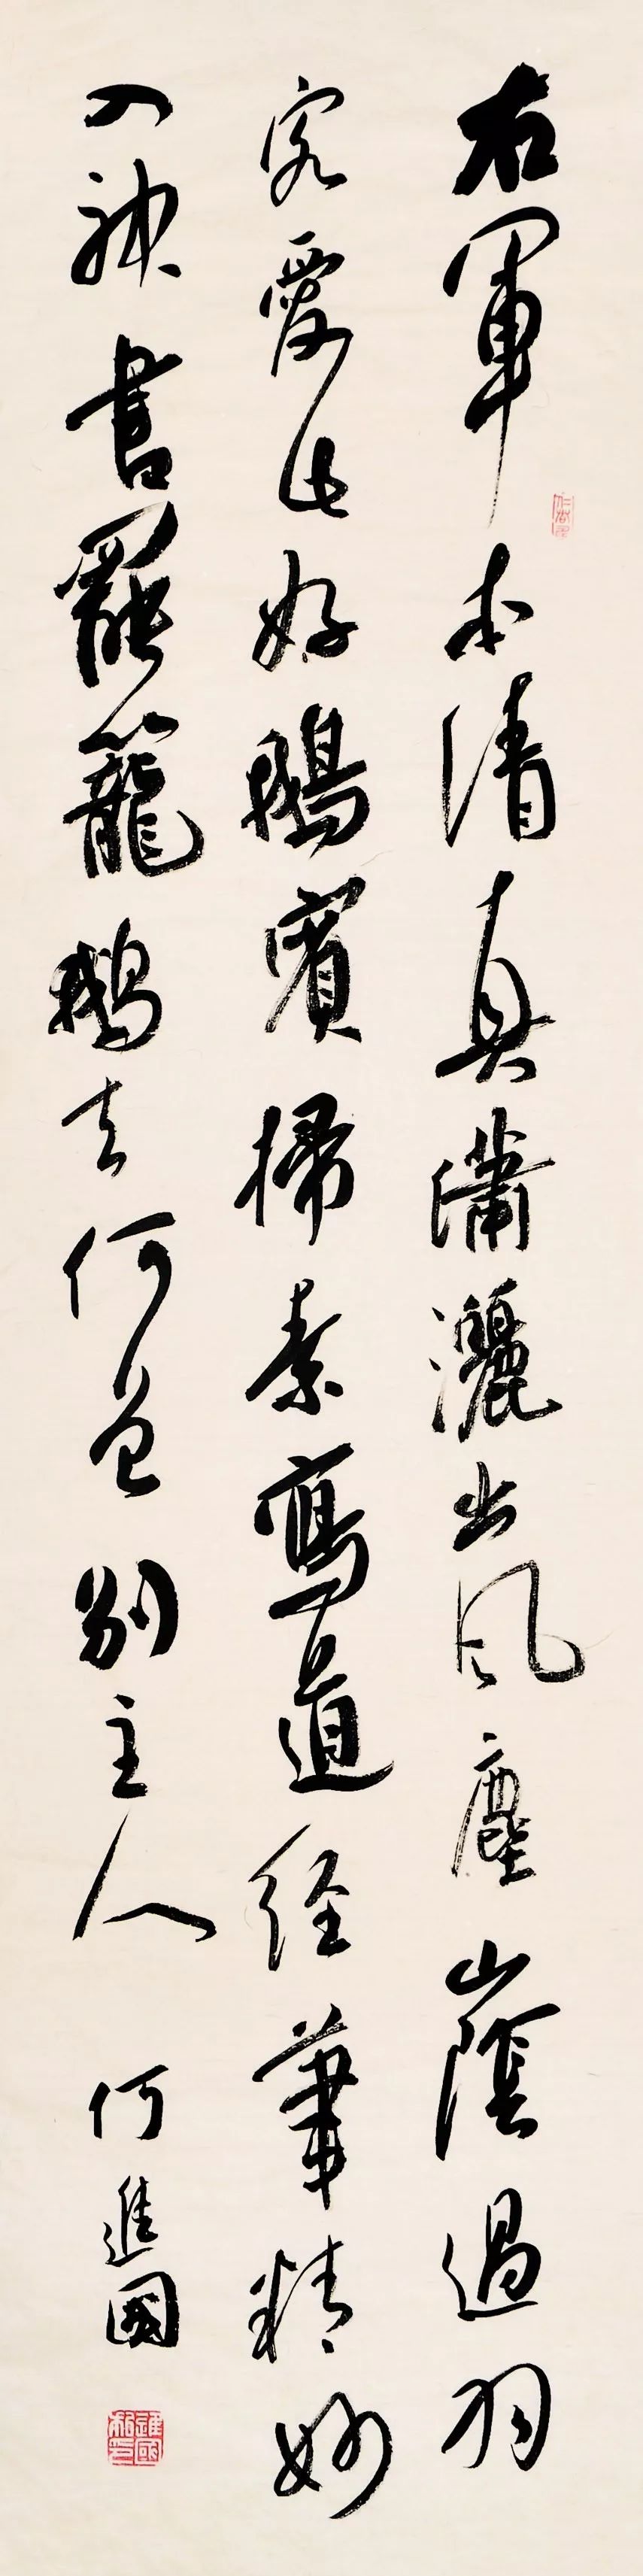 右軍本清真瀟灑出風塵山陰過羽
客愛此好鵝賓掃素寫道經筆精妙
入神書罷籠鵝去何曾別主人
何進國